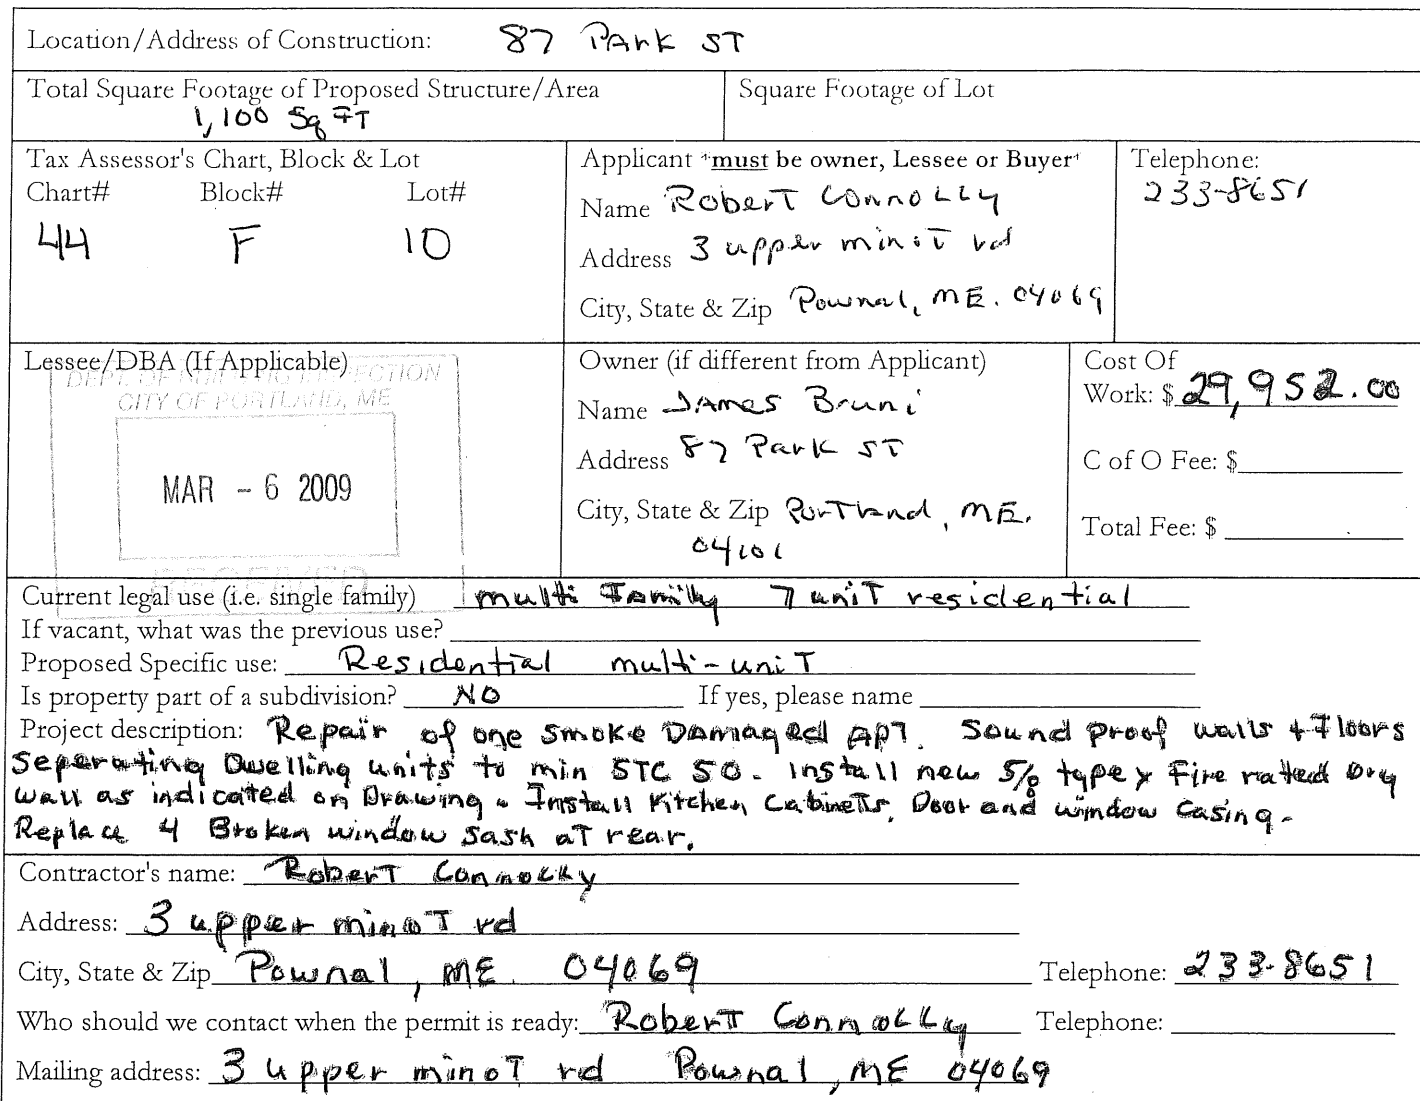 Location/Address of Construction: 87 Park ST
Total Square Footage of Proposed Structure/Area
1,100 Sq FT
Square Footage of Lot
Tax Assessor's Chart, Block & Lot
Chart# Block# Lot#
44 F 10
Applicant *must be owner, Lessee or Buyer*
Name Robert Connolly
Address 3 upper minot rd
City, State & Zip Pownal, ME. 04069
Telephone:
233-8651
Lessee/DBA (If Applicable)
DEPT. OF BUILDING INSPECTION
CITY OF PORTLAND, ME
MAR - 6 2009
RECEIVED
Owner (if different from Applicant)
Name James Bruni
Address 87 Park ST
City, State & Zip Portland, ME.
04101
Cost Of
Work: $ 29,952.00
C of O Fee: $
Total Fee: $
Current legal use (i.e. single family) multi Family 7 unit residential
If vacant, what was the previous use?
Proposed Specific use: Residential multi-unit
Is property part of a subdivision? NO If yes, please name
Project description: Repair of one smoke Damaged APT. Sound proof walls + Floors
Seperating Dwelling units to min STC 50. install new 5/8 type x Fire rated Dry
wall as indicated on Drawing. Install Kitchen Cabinets, Door and window casing.
Replace 4 Broken window sash at rear.
Contractor's name: Robert Connolly
Address: 3 upper minot rd
City, State & Zip Pownal, ME. 04069 Telephone: 233-8651
Who should we contact when the permit is ready: Robert Connolly Telephone:
Mailing address: 3 upper minot rd Pownal, ME 04069